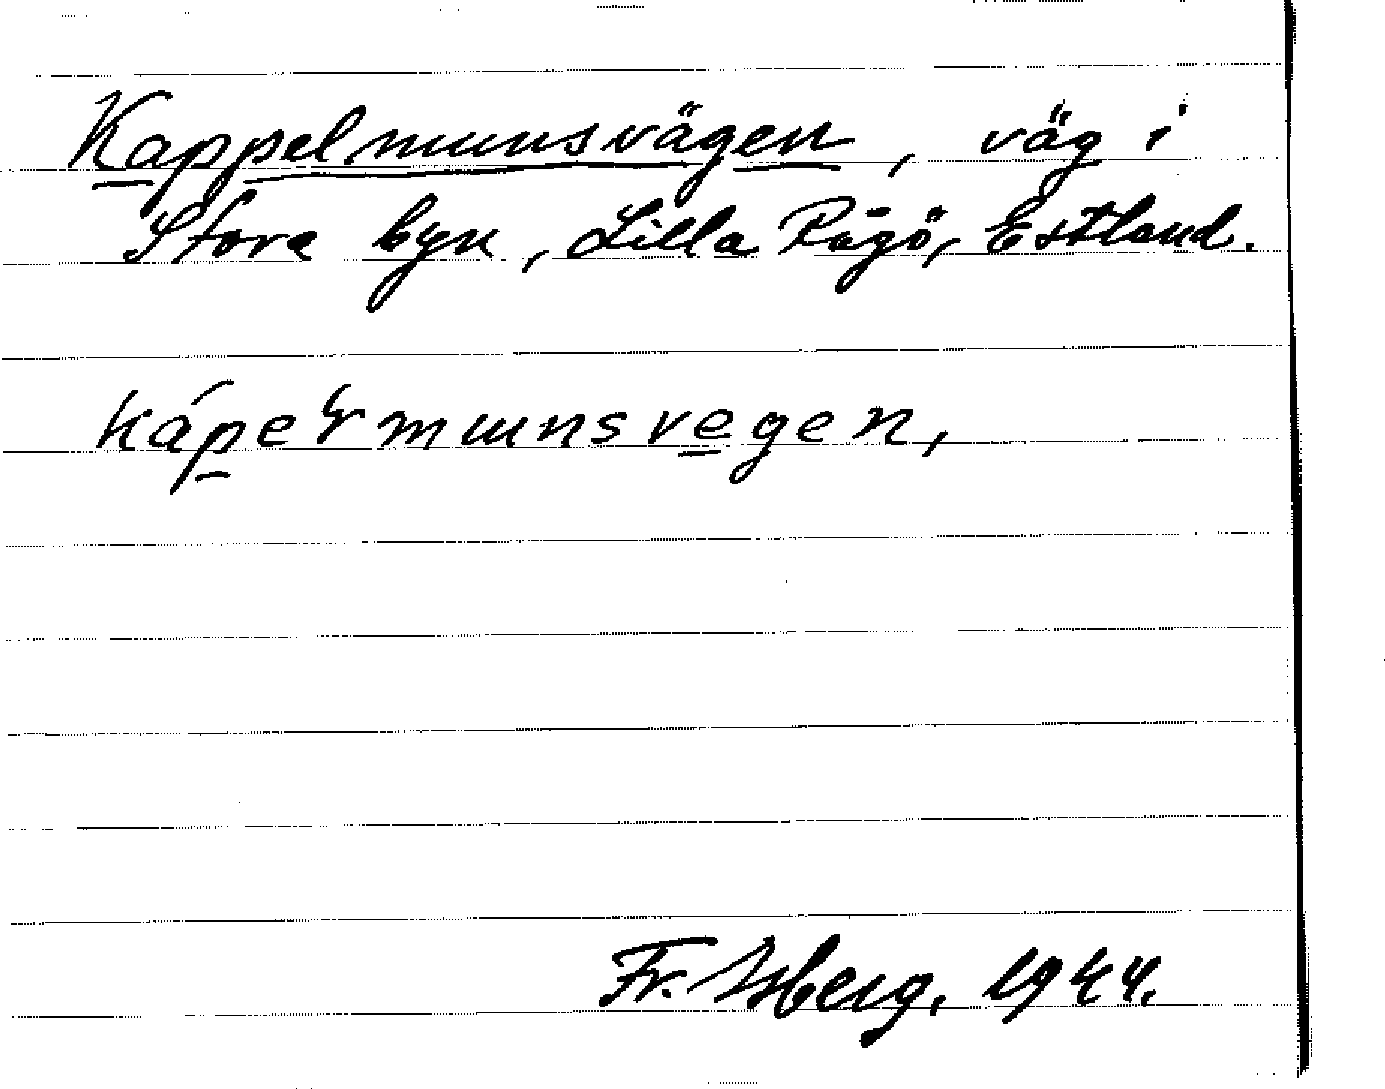 Kappelmunsvägen, väg i
Stora byn, Lilla Rågö, Estland.
kápeɫmunsvegen,
Fr. Isberg. 1944.